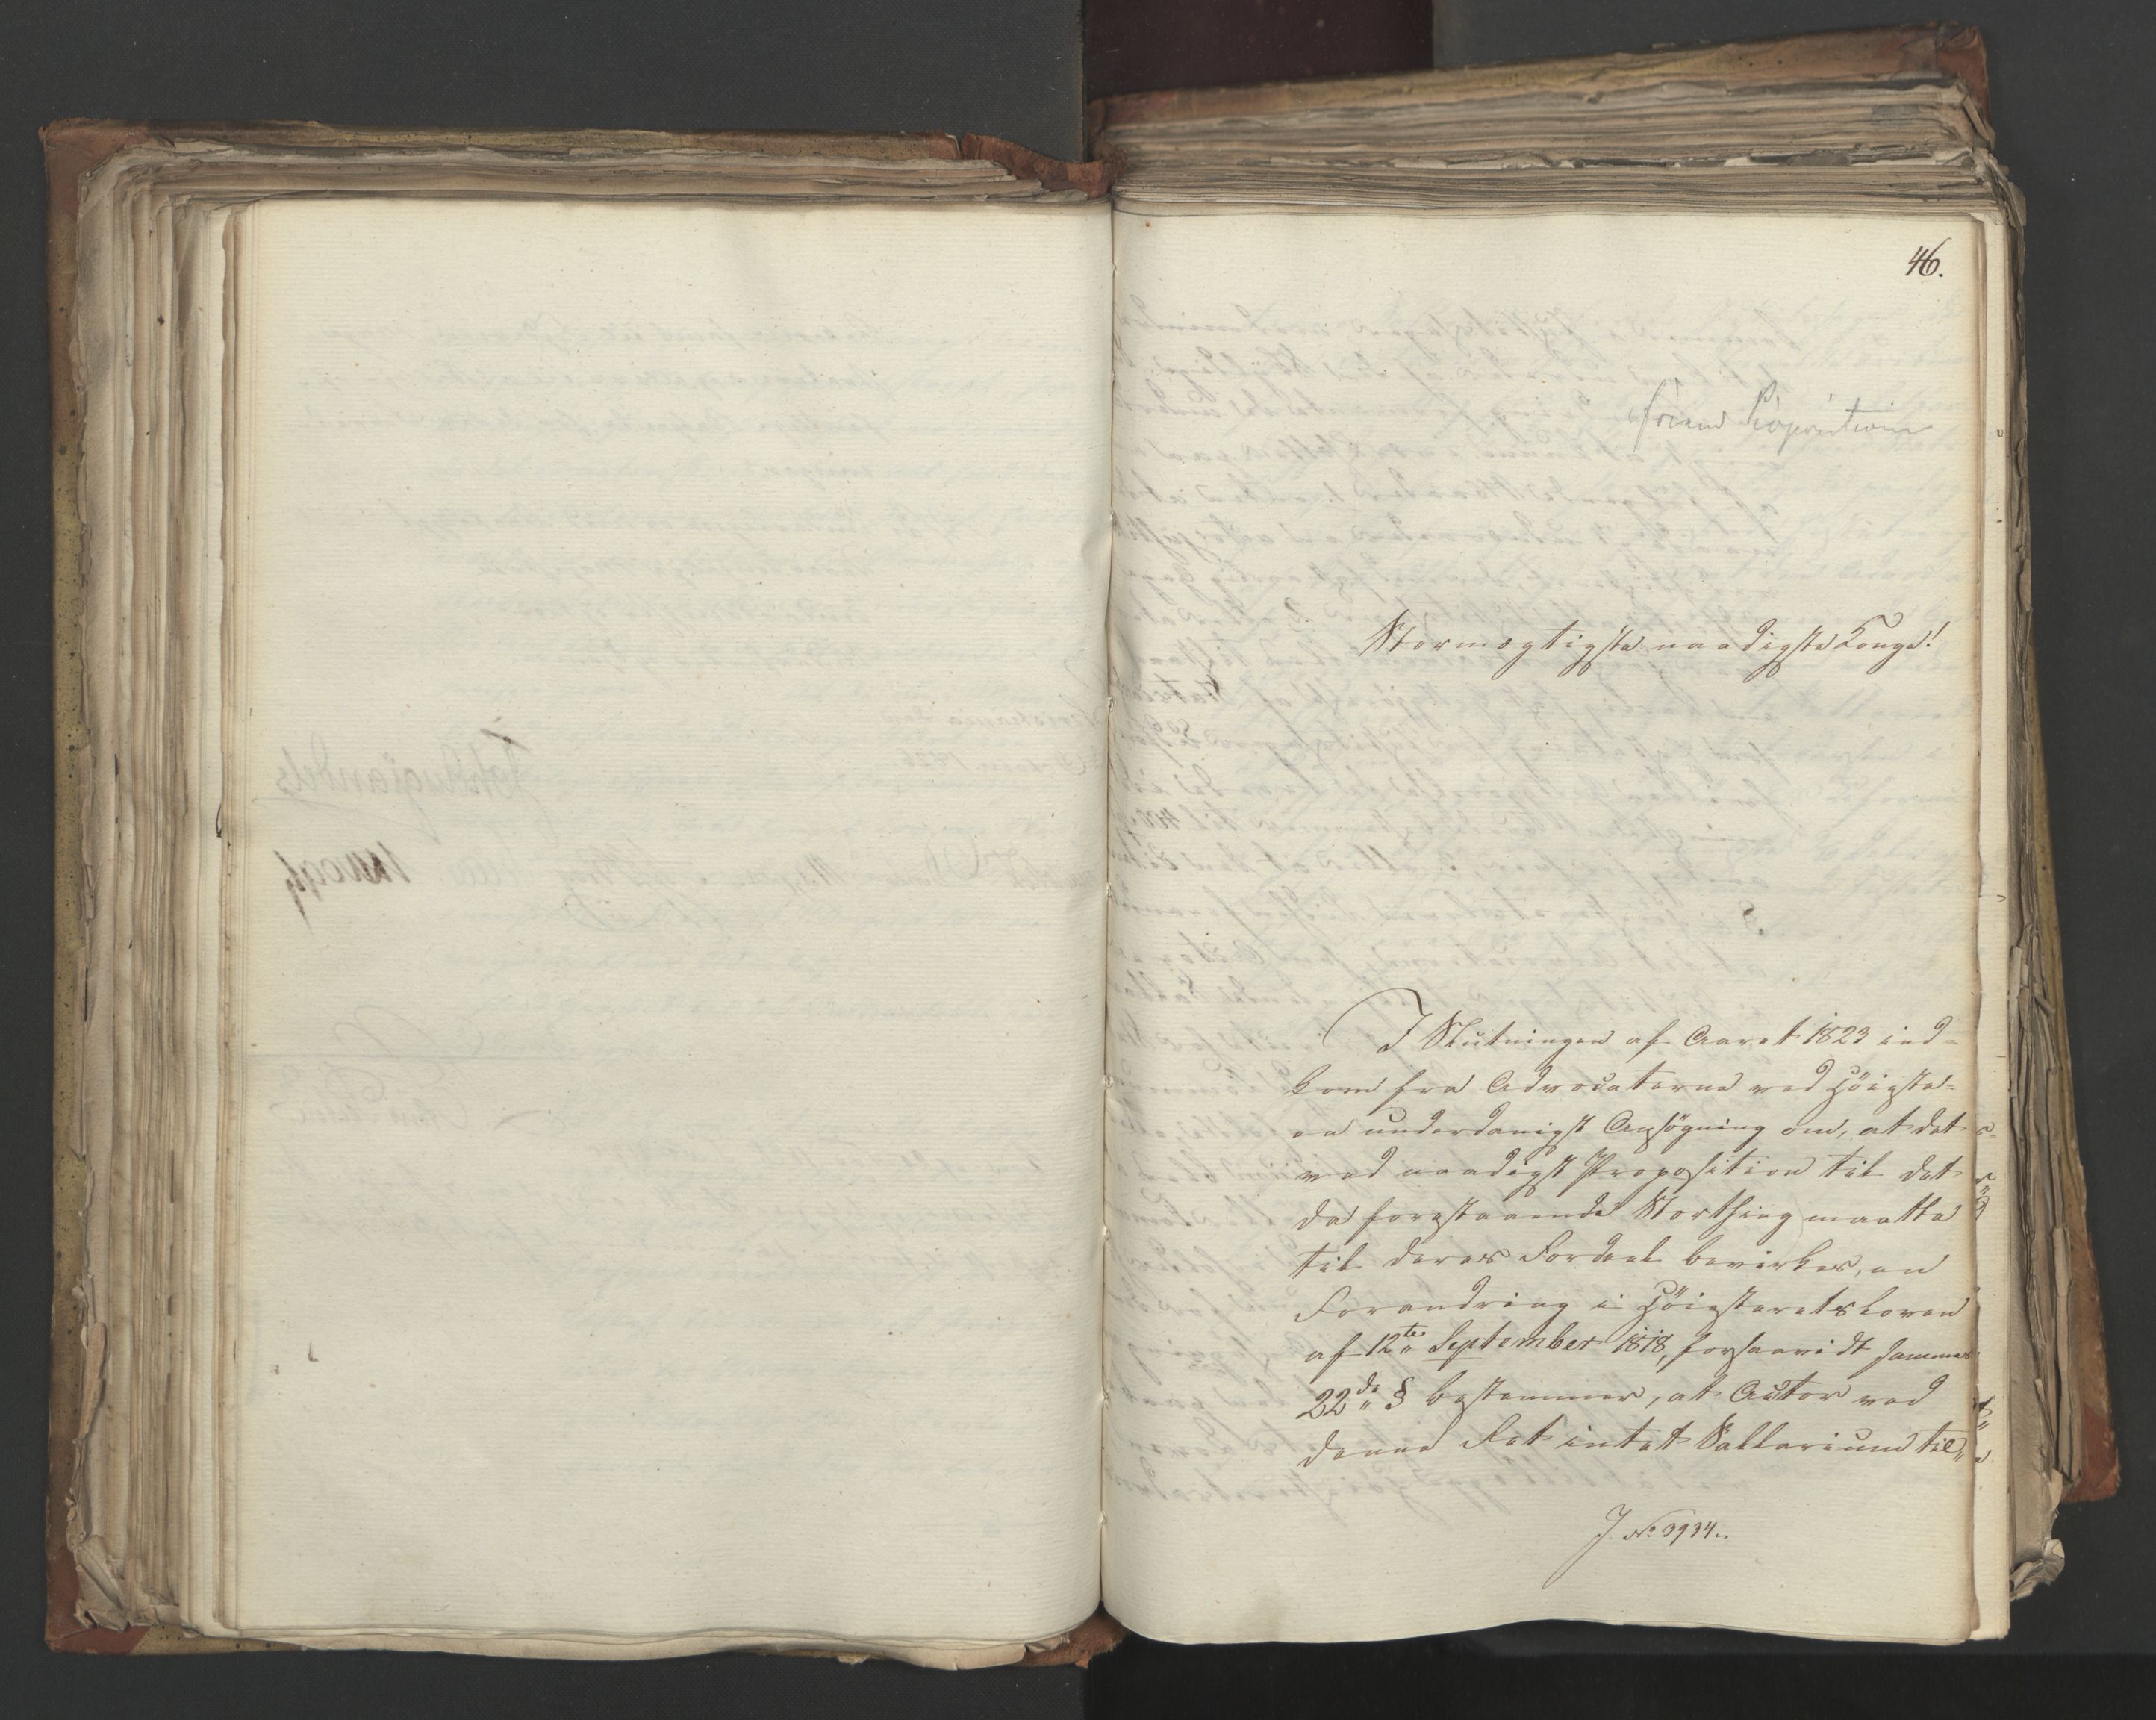 46.
Stormægtigste naadigste Konge!
I Slutningen af Aaret 1823 ind-
kom fra Advocaterne ved Höieste-
en underdanigst Ansögning om, at det
ved naadigst Proposition til det
da forestaaende Storthing maatte
til deres Fordeel bevirkes, en
Forandring i Höiesteretsloven
af 12te September 1818, forsaavidt sammes
22de § bestemmer, at Actor ved
denne Ret intet Sallarium til„
J. No 3934.